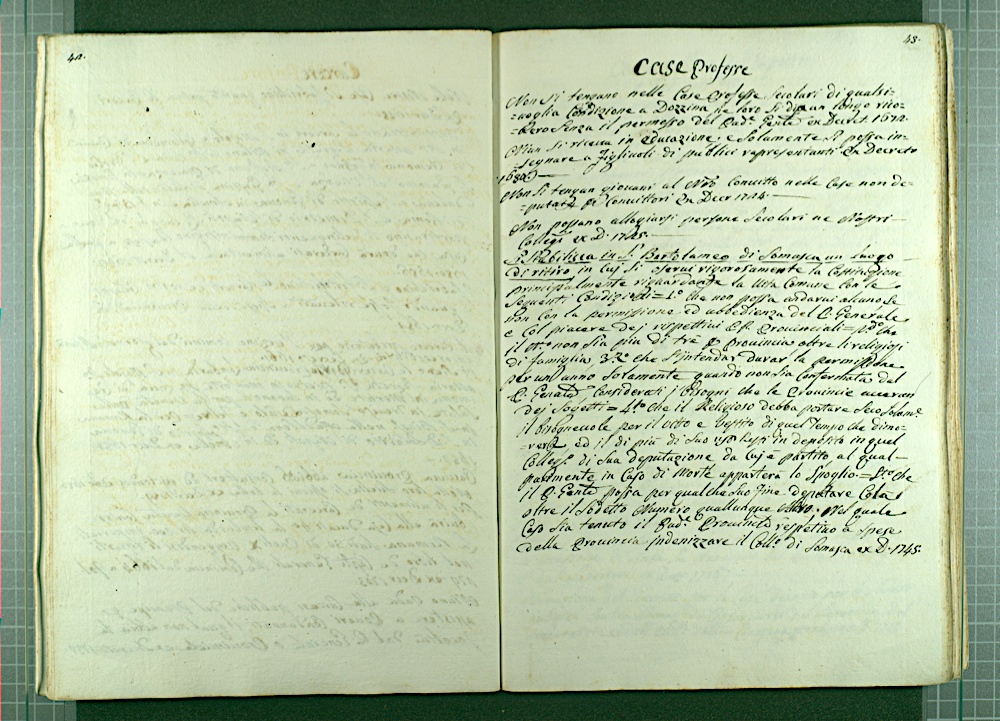 42.
43.
Case Professe
Non si tengano nelle Case Professe Secolari di qualsi=
=voglia Condizione a Dozzina ne loro si dia un longo rico=
=vero senza il permesso del Pad.e Gen.le ex Decret 1672.
Niun si riceva in educazione, e solamente si possa in=
=segnare a Figliuoli di publici rapresentanti Ex Decreto
Non si tengan giovani al Nro Convitto nelle Case non de=
=putate p Convittori Ex Decr 1724.
Non possano allogiarsi persone Secolari ne Nostri
Collegi ex D. 1725.
Si Stabilisca in S. Bartolameo di Somasca un luogo
di ritiro in cui si osservi rigorosamente la Costituzione
principalmente riguardante la Vita Comune con le
seguenti Condizioni = 1.o che non possa andarvi alcuno se
non con la permissione ed ubbedienza del P. Generale
e col piacere dei respettivi PP. Provinciali = 2.do che
il non sia piu di tre p Provincia oltre li religiosi
di famiglia 3.o che s'intenda durar la permissione
per un'anno solamente quando non sia confermata dal
P. Gen.ale Considerati i bisogni che le Provincie avevan
dei Sogetti = 4.to che il Religioso debba portare seco solam.te
il bisognevole per il vitto e vestito di quel tempo che dimo=
=rerà ed il di piu di suo uso lasci in deposito in quel
Colleg.o di sua deputazione da cui è partito al qual
parimente in caso di Morte apparterà lo spoglio = 5.to che
il P. Gen.le possa per qualche suo fine deputare colà
oltre il sodetto Numero quallunque altro; Nel quale
caso sia tenuto il Pad.e Provinc.le respetivo a spese
della Provincia indenizzare il Coll.o di Somasca ex D. 1745.